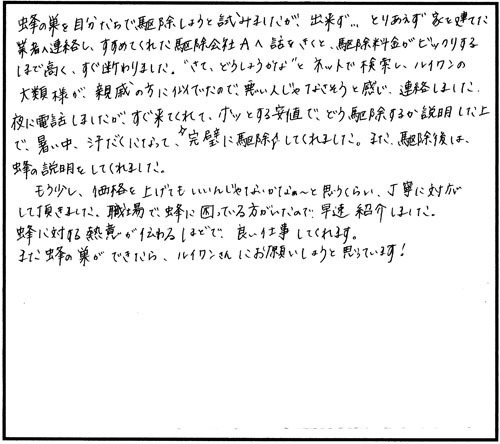 蜂の巣を自分たちで駆除しようと試みましたが、出来ず… とりあえず家を建てた
業者へ連絡し、すすめてくれた駆除会社Aへ話をきくと、駆除料金がビックリする
ほど高く、すぐ断わりました。"さて、どうしようかな"とネットで検索し、ルイワンの
大類様が、親戚の方に似てたので、悪い人じゃなさそうと感じ、連絡しました。
夜に電話しましたが、すぐ来てくれて、ホッとする安値で、どう駆除するか説明した上
で、暑い中、汗だくになって、"完璧"に駆除してくれました。また、駆除後は、
蜂の説明をしてくれました。
もう少し、価格を上げてもいいんじゃないかなぁ〜と思うくらい、丁寧に対応
して頂きました。職場で蜂に困っている方がいたので、早速紹介しました。
蜂に対する熱意が伝わるほどで、良い仕事してくれます。
また蜂の巣ができたら、ルイワンさんにお願いしようと思っています!